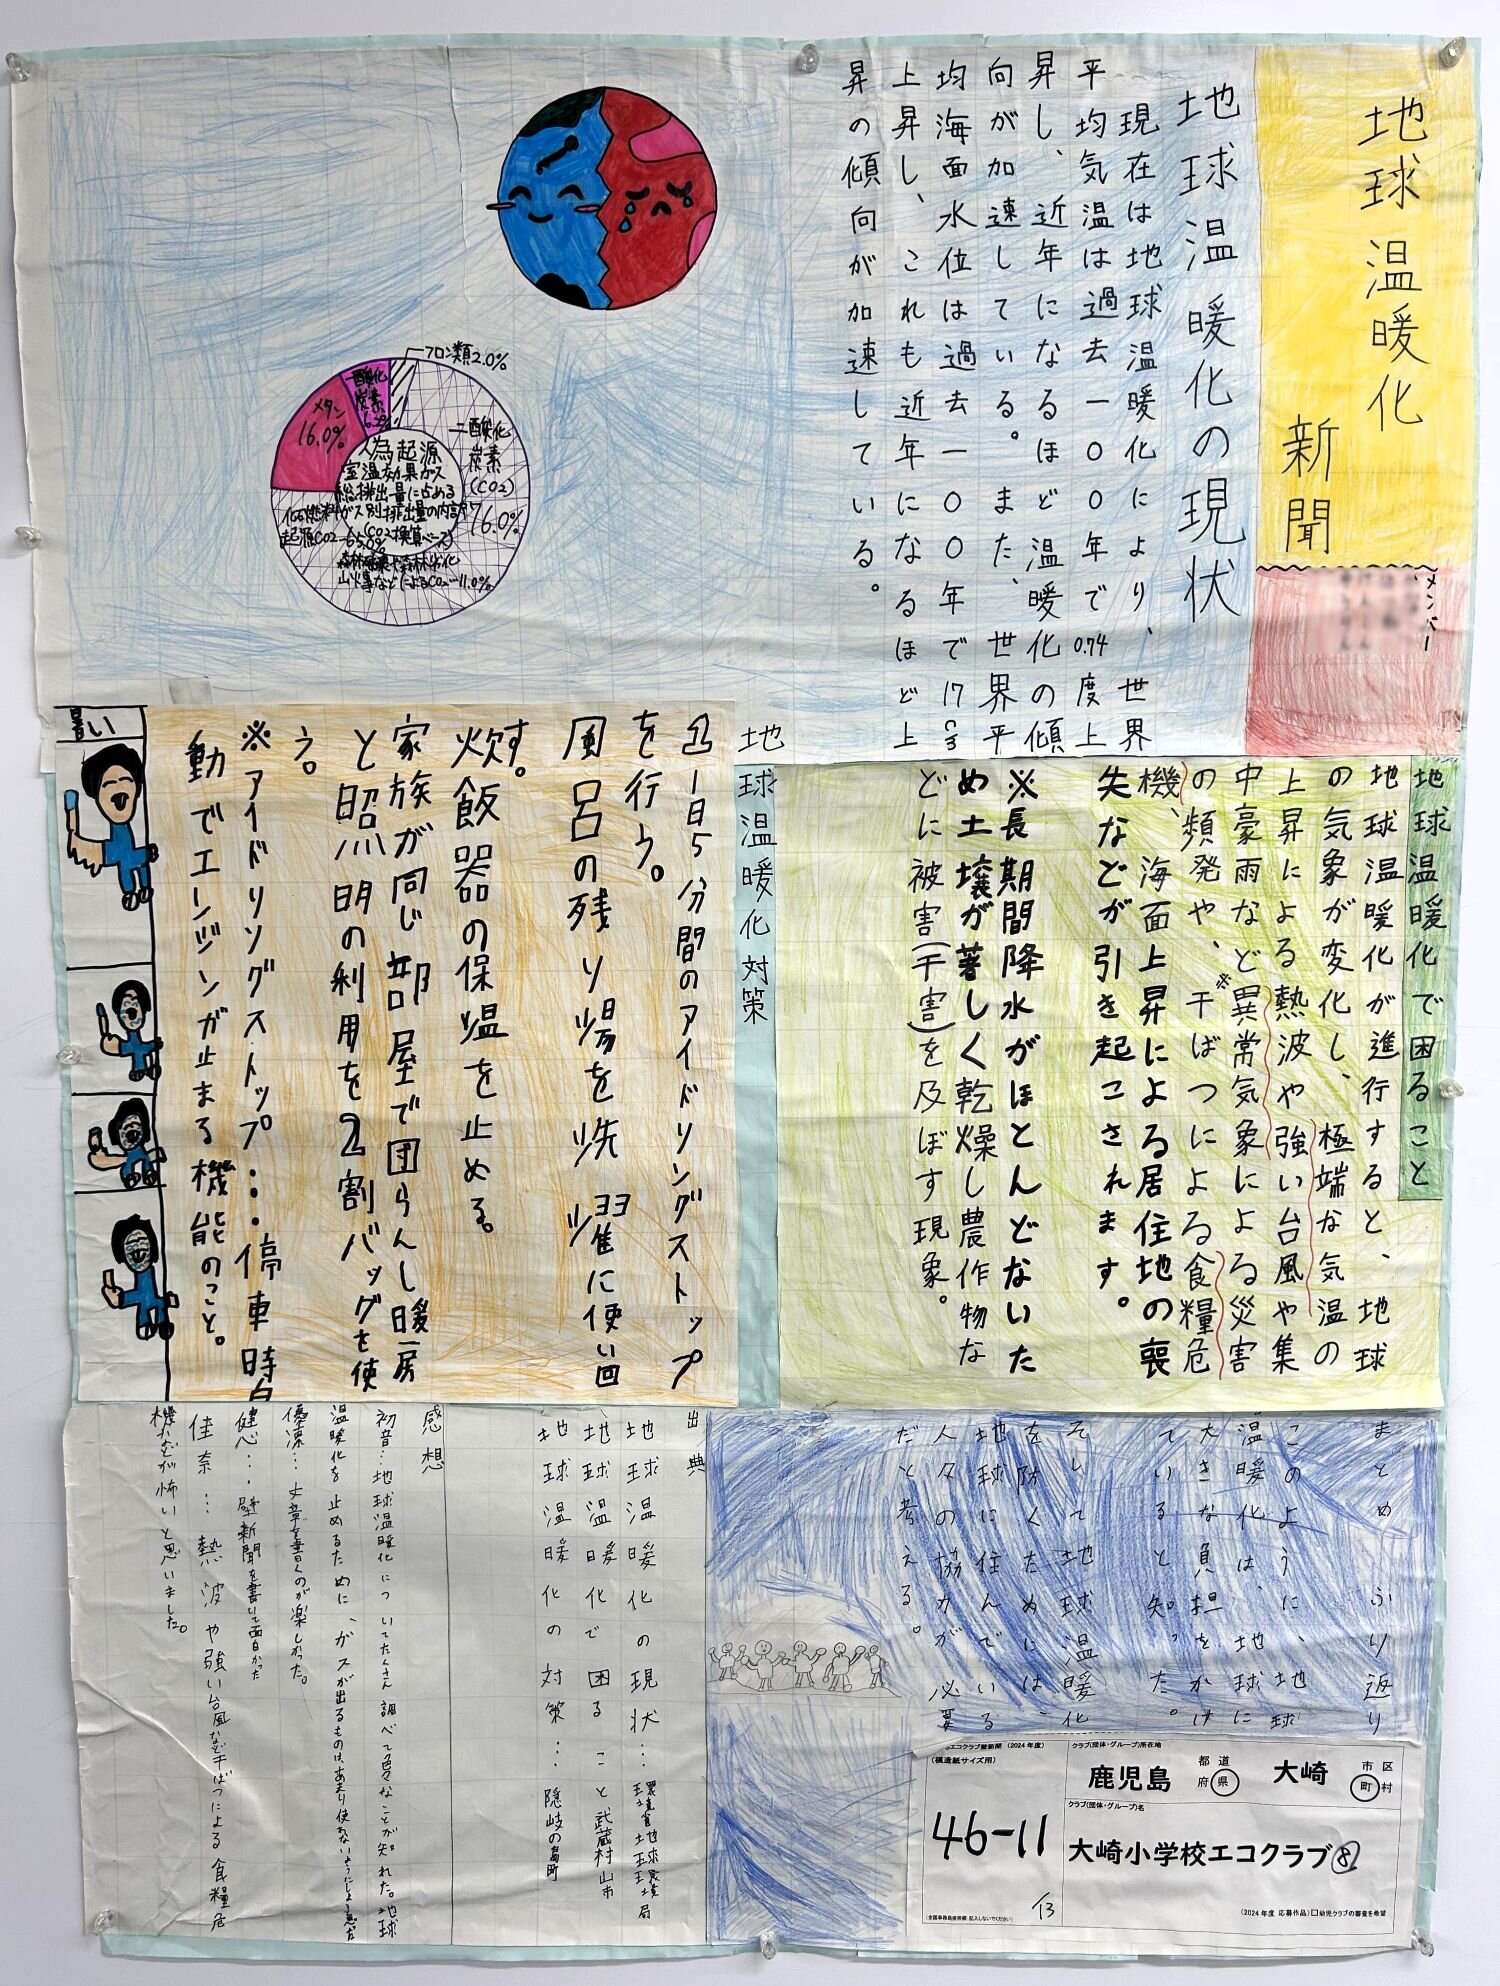 地球温暖化
新聞
メンバー
地球温暖化の現状
現在は地球温暖化により、世界
平均気温は過去一〇〇年で0.74度上
昇し、近年になるほど温暖化の傾
向が加速している。また、世界平
均海面水位は過去一〇〇年で17cm
上昇し、これも近年になるほど上
昇の傾向が加速している。
フロン類2.0%
一酸化
炭素
6.2%
メタン
16.0%
二酸化
炭素
(CO2)
76.0%
人為起源
室温効果ガス
総排出量に占める
ガス別排出量の内訳
(CO2換算ベース)
化石燃料
起源CO2…65.0%
山火事などによるCO2…11.0%
地球温暖化で困ること
地球温暖化が進行すると、地球
の気象が変化し、極端な気温の
上昇による熱波や強い台風や集
中豪雨など異常気象による災害
の頻発や、※干ばつによる食糧危
機、海面上昇による居住地の喪
失などが引き起こされます。
※長期間降水がほとんどないた
め土壌が著しく乾燥し農作物な
どに被害(干害)を及ぼす現象。
地球温暖化対策
1日5分間のアイドリングストップ
を行う。
風呂の残り湯を洗濯に使い回
す。
炊飯器の保温を止める。
家族が同じ部屋で団らんし暖房
と照明の利用を2割バッグを使
う。
※アイドリングストップ…停車時自
動でエンジンが止まる機能のこと。
暑い
まとめ ふり返り
このように、地球
温暖化は、地球に
大きな負担をかけ
ていると知った。
そして地球温暖化
を防ぐためには、
地球に住んでいる
人々の協力が必要
だと考える。
出典
地球温暖化の現状…環境省地球環境局
地球温暖化で困ること 武蔵村山市
地球温暖化の対策…隠岐の島町
感想
初音…地球温暖化についてたくさん調べて色々なことが知れた。地球
温暖化を止めるために、ガスが出るものは、あまり使わないようにしようと思った
優凍…文章を書くのが楽しかった。
健心…壁新聞を書いて面白かった
佳奈…熱波や強い台風など干ばつによる食糧危
機などが怖いと思いました。
エコクラブ壁新聞 (2024年度)
(模造紙サイズ用)
46-11
13
(全国事務局使用欄:記入しないでください)
クラブ(団体・グループ)所在地
鹿児島 都道府県 大崎 市区町村
クラブ(団体・グループ)名
大崎小学校エコクラブ⑧
(2024年度 応募作品)□幼児クラブの審査を希望